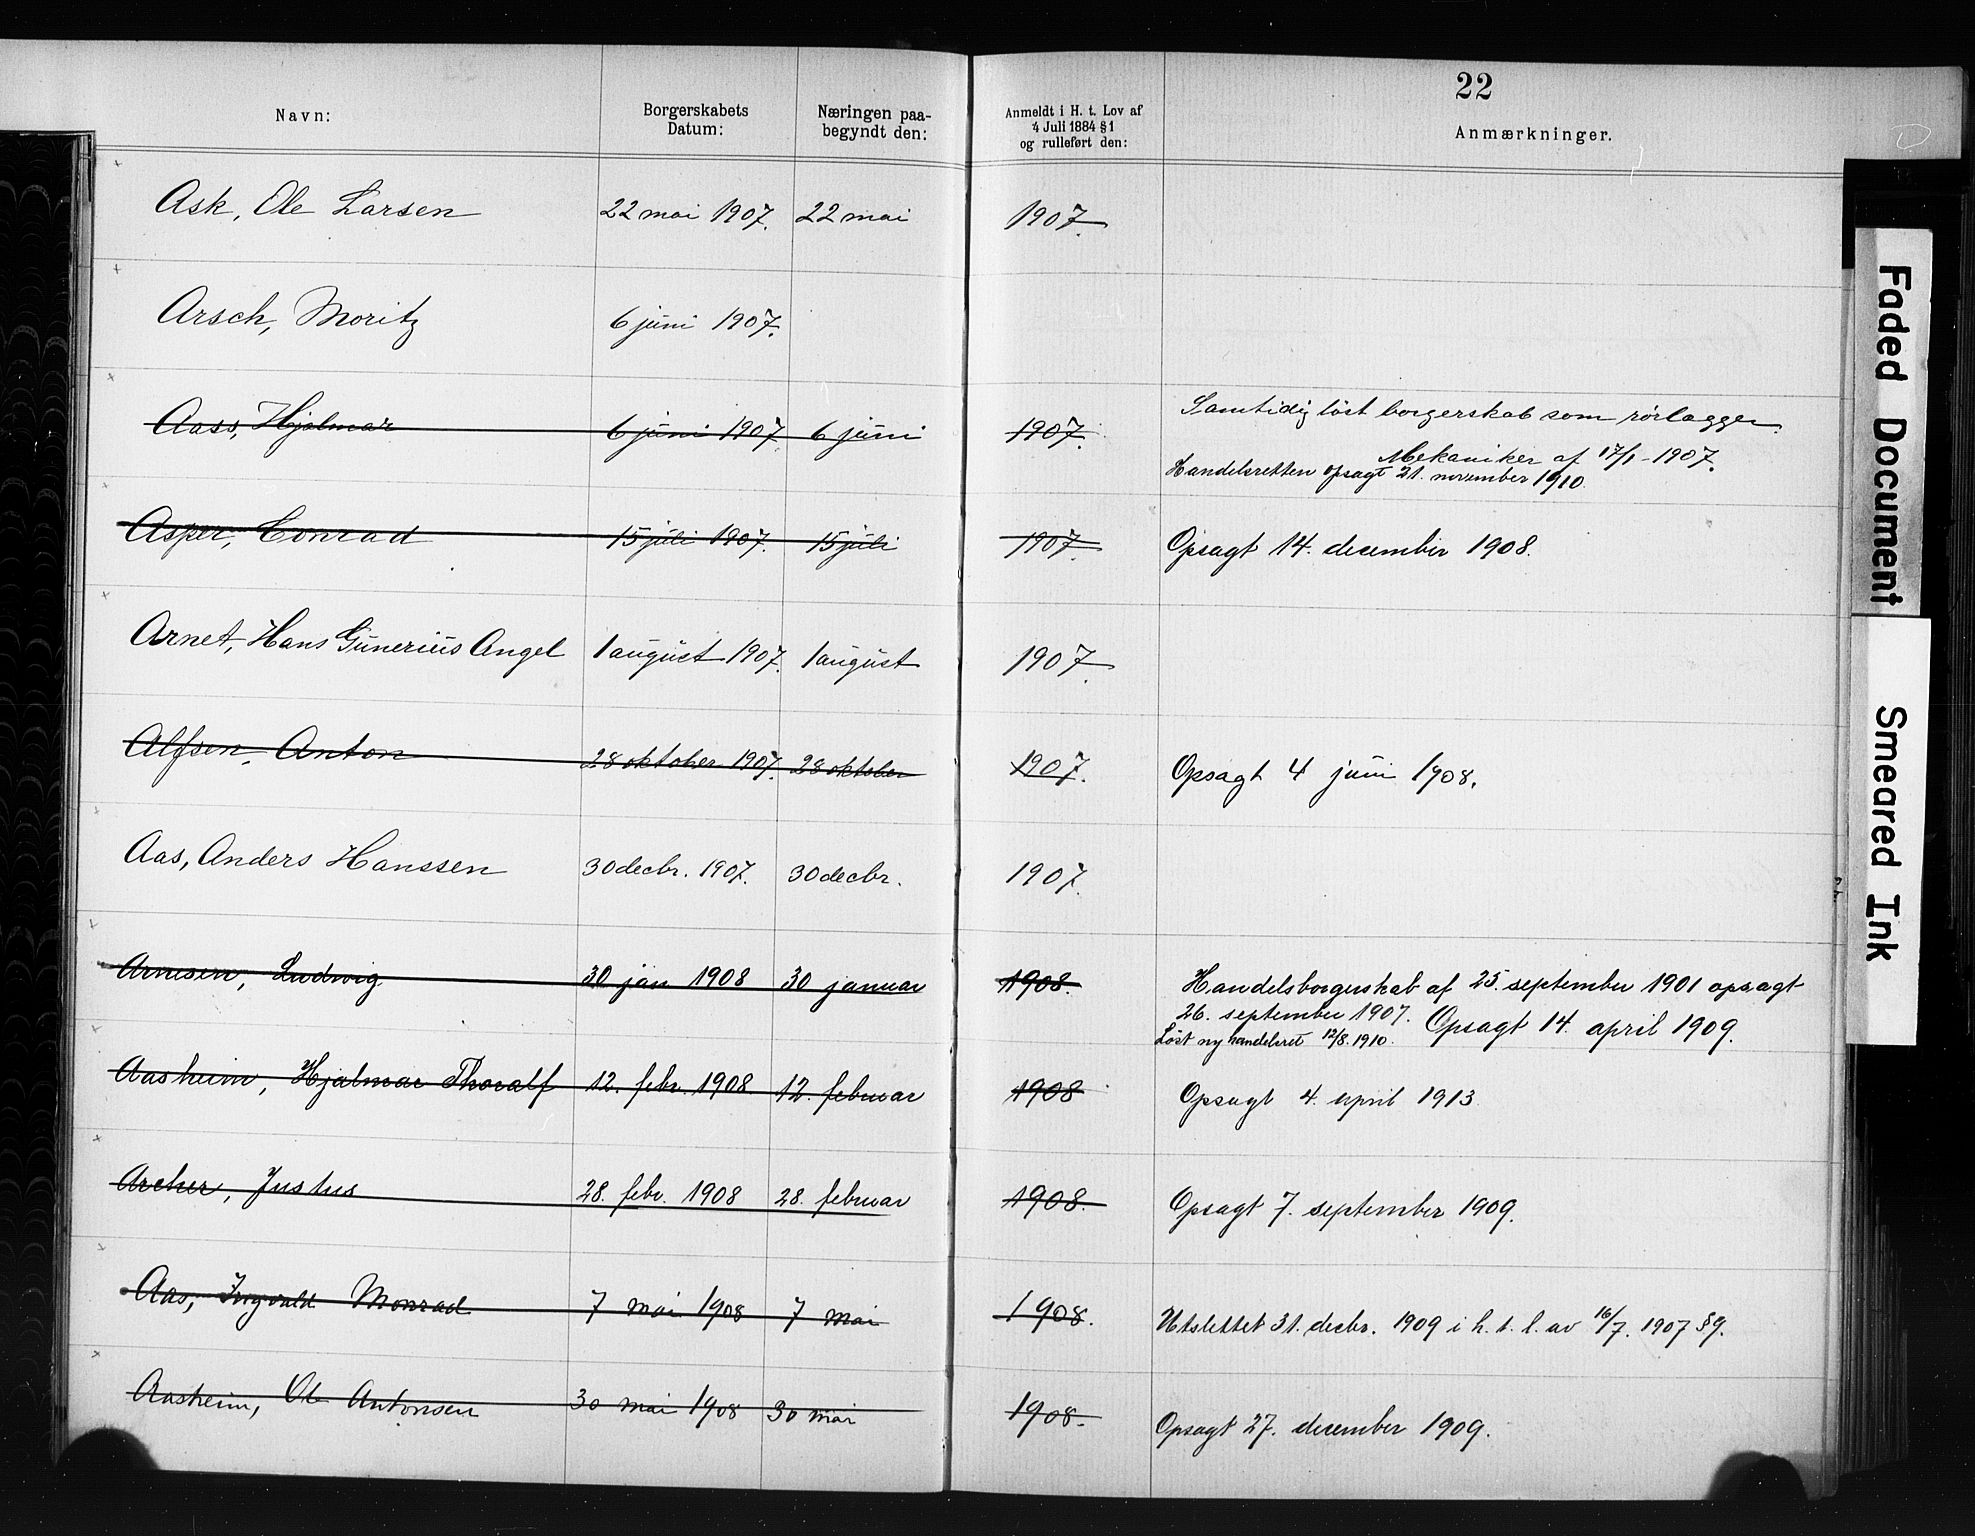 22
Navn: Borgerskabets Datum: Næringen paa-begyndt den: Anmeldt i H. t. Lov af 4 Juli 1884 § 1 og rulleført den: Anmærkninger.
Ask, Ole Larsen 22 mai 1907. 22 mai 1907.
Arsch, Moritz 6 juni 1907.
Aass, Hjalmar 6 juni 1907 6 juni 1907. Samtidig löst borgerskab som rörlægger.
Mekaniker af 17/1 - 1907.
Handelsretten opsagt 21. november 1910.
Asper, Conrad 15 juli 1907. 15 juli 1907. Opsagt 14. december 1908.
Arnet, Hans Gunerius Angel 1 august 1907. 1 august 1907.
Alfsen, Anton 28 oktober 1907. 28 oktober 1907. Opsagt 4 juni 1908.
Aas, Anders Hanssen 30 decbr. 1907. 30 decbr. 1907.
Arnesen, Ludwig 30 jan 1908 30 januar 1908. Handelsborgerskab af 25. september 1901 opsagt
26. september 1907. Opsagt 14. april 1909.
Löst ny handelsret 12/8. 1910.
Aasheim, Hjalmar Thoralf 12. febr. 1908 12. februar 1908 Opsagt 4. april 1913
Archer, Justus 28. febr. 1908 28. februar 1908. Opsagt 7. september 1909.
Aas, Ingvald Monrad 7 mai 1908 7 mai 1908. Utslettet 31. decbr. 1909 i h. t. l. av 16/7. 1907 § 9.
Aasheim, Ole Antonsen 30 mai 1908 30 mai 1908. Opsagt 27. december 1909.
Faded Document
Smeared Ink